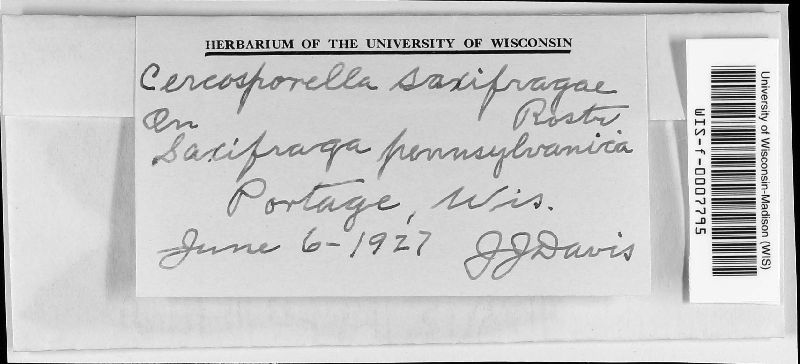 HERBARIUM OF THE UNIVERSITY OF WISCONSIN
Cercosporella saxifragae
Rostr
On
Saxifraga pennsylvanica
Portage, Wis.
June 6-1927 JJDavis
University of Wisconsin-Madison (WIS)
WIS-f-0007795